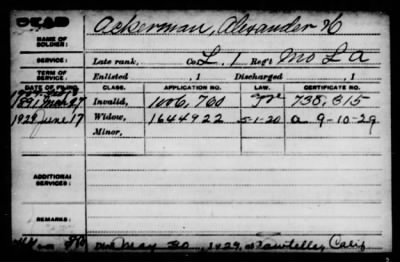 DEAD
NAME OF SOLDIER: Ackerman, Alexander H
SERVICE: Late rank, Co. L, 1 Reg't Mo L A
TERM OF SERVICE: Enlisted , 1 Discharged , 1
DATE OF FILING. CLASS. APPLICATION NO. LAW. CERTIFICATE NO.
1891 Mar 27 Invalid, 1006,760 738,815
1929 June 17 Widow, 1644922 5-1-20 a 9-10-29
Minor,
ADDITIONAL SERVICES:
REMARKS:
May 30, 1929, Sawtelle, Calif